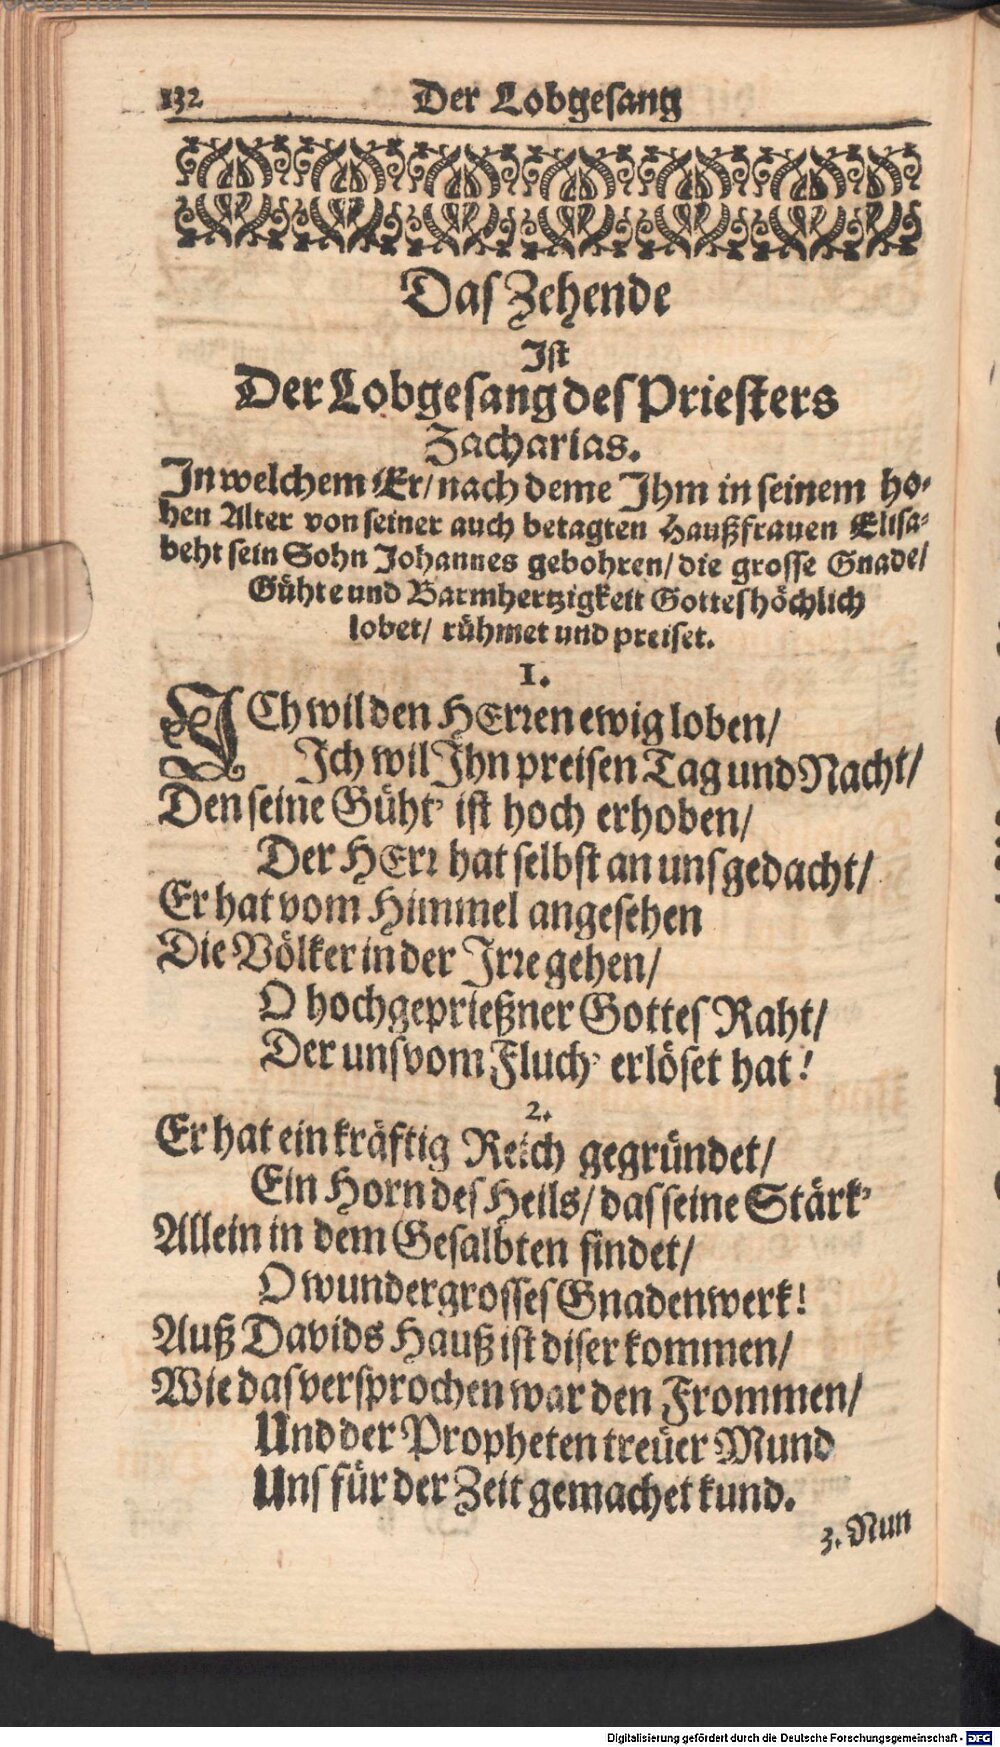 132 Der Lobgesang
Das Zehende
Ist
Der Lobgesang des Priesters
Zacharias.
In welchem Er/ nach deme Ihm in seinem ho-
hen Alter von seiner auch betagten Haußfrauen Elisa-
beht sein Sohn Johannes gebohren/ die grosse Gnade/
Gühte und Barmhertzigkeit Gottes höchlich
lobet/ rühmet und preiset.
1.
ICh wil den HErren ewig loben/
Ich wil Ihn preisen Tag und Nacht/
Den seine Güht' ist hoch erhoben/
Der HErr hat selbst an uns gedacht/
Er hat vom Himmel angesehen
Die Völker in der Irre gehen/
O hochgeprießner Gottes Raht/
Der uns vom Fluch' erlöset hat!
2.
Er hat ein kräftig Reich gegründet/
Ein Horn des Heils/ das seine Stärk'
Allein in dem Gesalbten findet/
O wundergrosses Gnadenwerk!
Auß Davids Hauß ist diser kommen/
Wie das versprochen war den Frommen/
Und der Propheten treüer Mund
Uns für der Zeit gemachet kund.
3. Nun
Digitalisierung gefördert durch die Deutsche Forschungsgemeinschaft - DFG